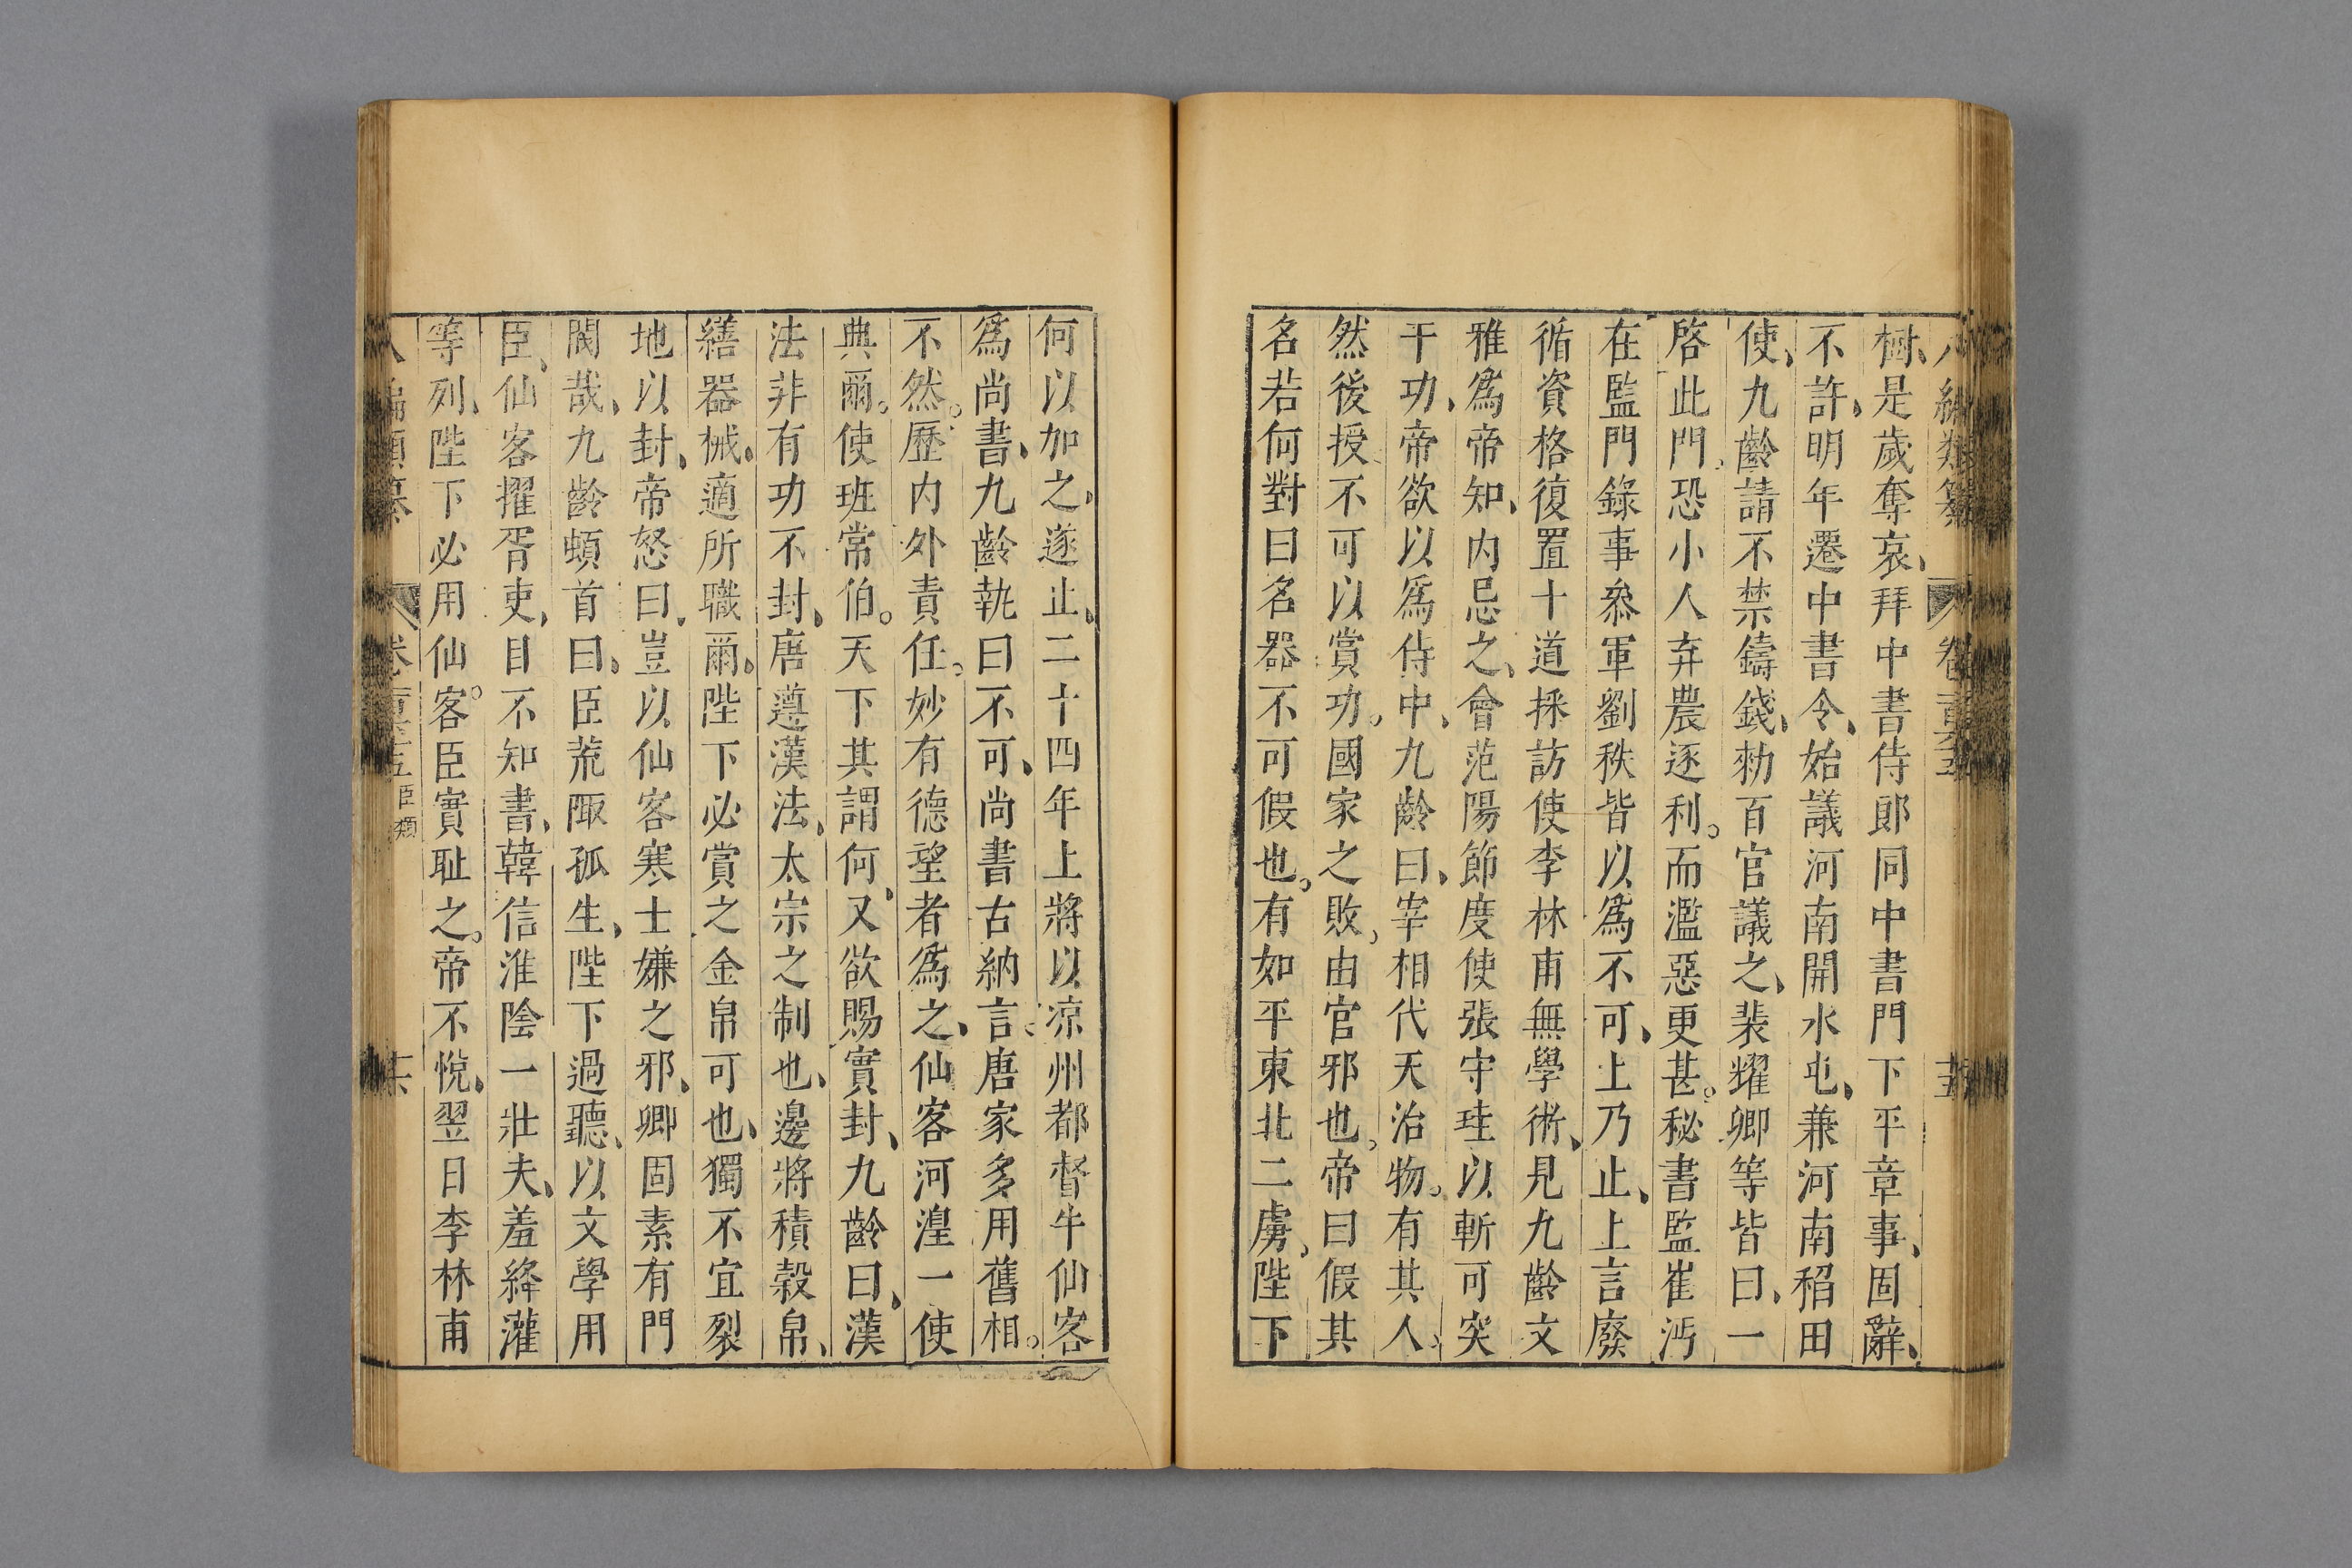 八編類纂 卷 十五
樹、是歲奪哀、拜中書侍郎同中書門下平章事、固辭、
不許、明年遷中書令、始議河南開水屯、兼河南稻田
使、九齡請不禁鑄錢、勑百官議之、裴耀卿等皆曰、一
啓此門、恐小人弃農逐利。而濫惡更甚。秘書監崔沔
在監門錄事叅軍劉秩皆以爲不可、上乃止、上言廢
循資格復置十道採訪使李林甫無學術、見九齡文
雅爲帝知、内忌之、會范陽節度使張守珪以斬可突
干功、帝欲以爲侍中、九齡曰、宰相代天治物。有其人、
然後授、不可以賞功。國家之敗、由官邪也、帝曰假其
名若何對曰名器不可假也。有如平東北二虜、陛下
何以加之、遂止、二十四年上將以凉州都督牛仙客
爲尚書、九齡執曰不可、尚書古納言、唐家多用舊相。
不然。歷内外責任。妙有德望者爲之、仙客河湟一使
典爾。使班常伯。天下其謂何、又欲賜實封、九齡曰、漢
法非有功不封、唐遵漢法、太宗之制也、邊將積穀帛、
繕器械、適所職爾。陛下必賞之金帛可也、獨不宜裂
地以封、帝怒曰、豈以仙客寒士嫌之邪、卿固素有門
閥哉、九齡頓首曰、臣荒陬孤生、陛下過聽、以文學用
臣、仙客擢胥吏、目不知書、韓信淮陰一壯夫、羞絳灌
等列、陛下必用仙客。臣實耻之。帝不悅、翌日李林甫
八編類纂 卷 臣類 十六